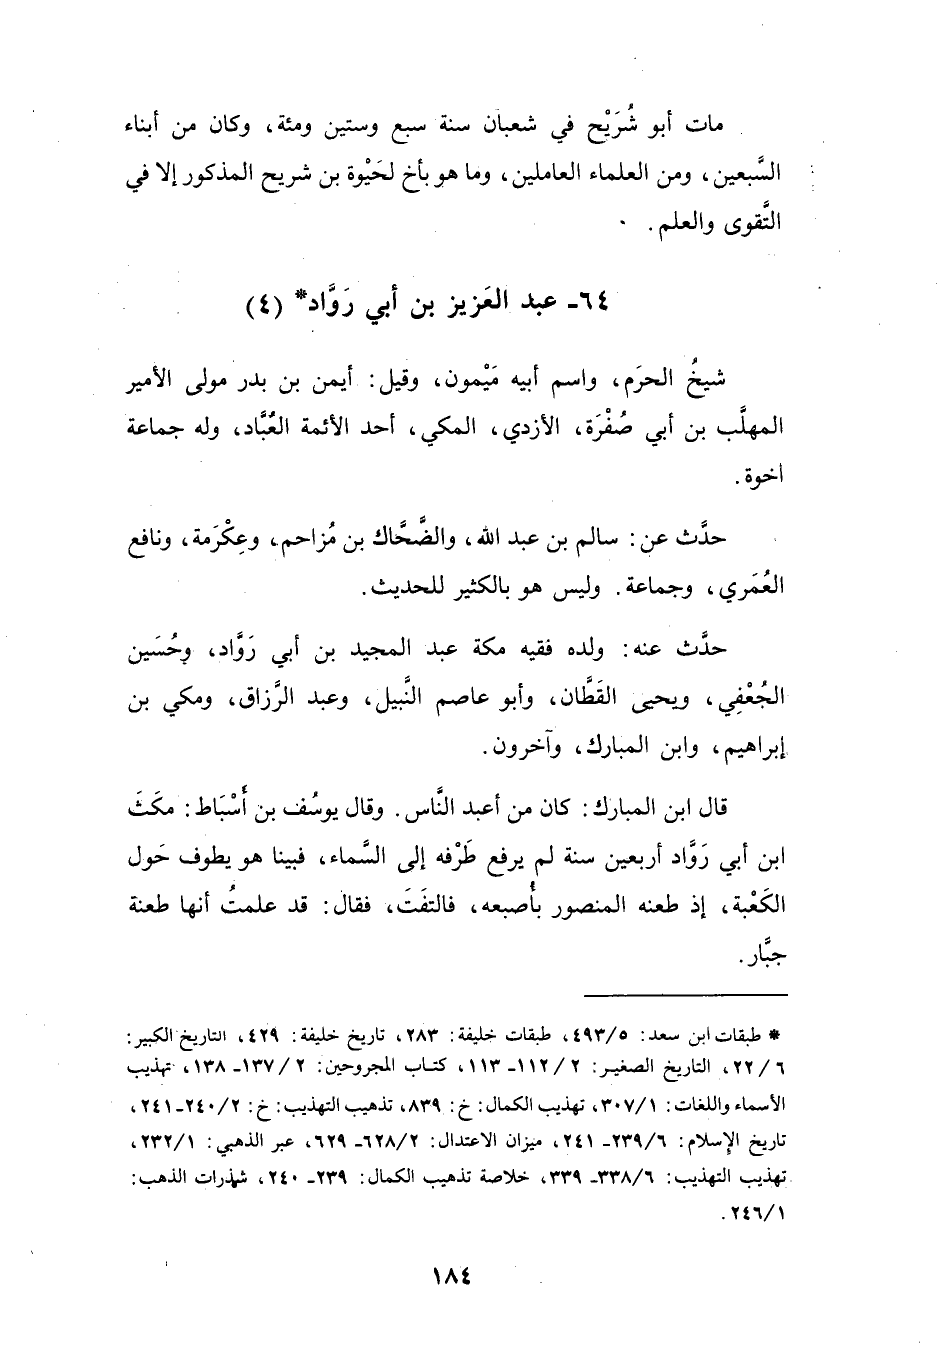 مات أبو شُرَيْح في شعبان سنة سبع وستين ومئة، وكان من أبناء
السَّبعين، ومن العلماء العاملين، وما هو بأخ لحَيْوة بن شريح المذكور إلا في
التَّقوى والعلم.
٦٤ـ عبد العَزيز بن أبي رَوَّاد* (٤)
شيخُ الحرَم، واسم أبيه مَيْمون، وقيل: أيمن بن بدر مولى الأمير
المهلَّب بن أبي صُفْرَة، الأزدي، المكي، أحد الأئمة العُبَّاد، وله جماعة
أخوة.
حدَّث عن: سالم بن عبد الله، والضَّحَّاك بن مُزاحم، وعِكْرَمة، ونافع
العُمَري، وجماعة. وليس هو بالكثير للحديث.
حدَّث عنه: ولده فقيه مكة عبد المجيد بن أبي رَوَّاد، وحُسَين
الجُعْفِي، ويحيى القَطَّان، وأبو عاصم النَّبيل، وعبد الرَّزاق، ومكي بن
إبراهيم، وابن المبارك، وآخرون.
قال ابن المبارك: كان من أعبد النَّاس. وقال يوسُف بن أَسْبَاط: مكَثَ
ابن أبي رَوَّاد أربعين سنة لم يرفع طَرْفه إلى السَّماء، فبينا هو يطوف حَول
الكَعْبة، إذ طعنه المنصور بأُصبعه، فالتفَتَ، فقال: قد علمتُ أنها طعنة
جبَّار.
* طبقات ابن سعد: ٤٩٣/٥، طبقات خليفة: ٢٨٣، تاريخ خليفة: ٤٢٩، التاريخ الكبير:
٢٢/٦، التاريخ الصغير: ١١٢/٢ـ ١١٣، كتاب المجروحين: ١٣٧/٢ـ ١٣٨، تهذيب
الأسماء واللغات: ٣٠٧/١، تهذيب الكمال: خ: ٨٣٩، تذهيب التهذيب: خ: ٢٤٠/٢ـ٢٤١،
تاريخ الإسلام: ٢٣٩/٦ـ ٢٤١، ميزان الاعتدال: ٦٢٨/٢ـ ٦٢٩، عبر الذهبي: ٢٣٢/١،
تهذيب التهذيب: ٣٣٨/٦ـ ٣٣٩، خلاصة تذهيب الكمال: ٢٣٩ـ ٢٤٠، شذرات الذهب:
٢٤٦/١.
١٨٤